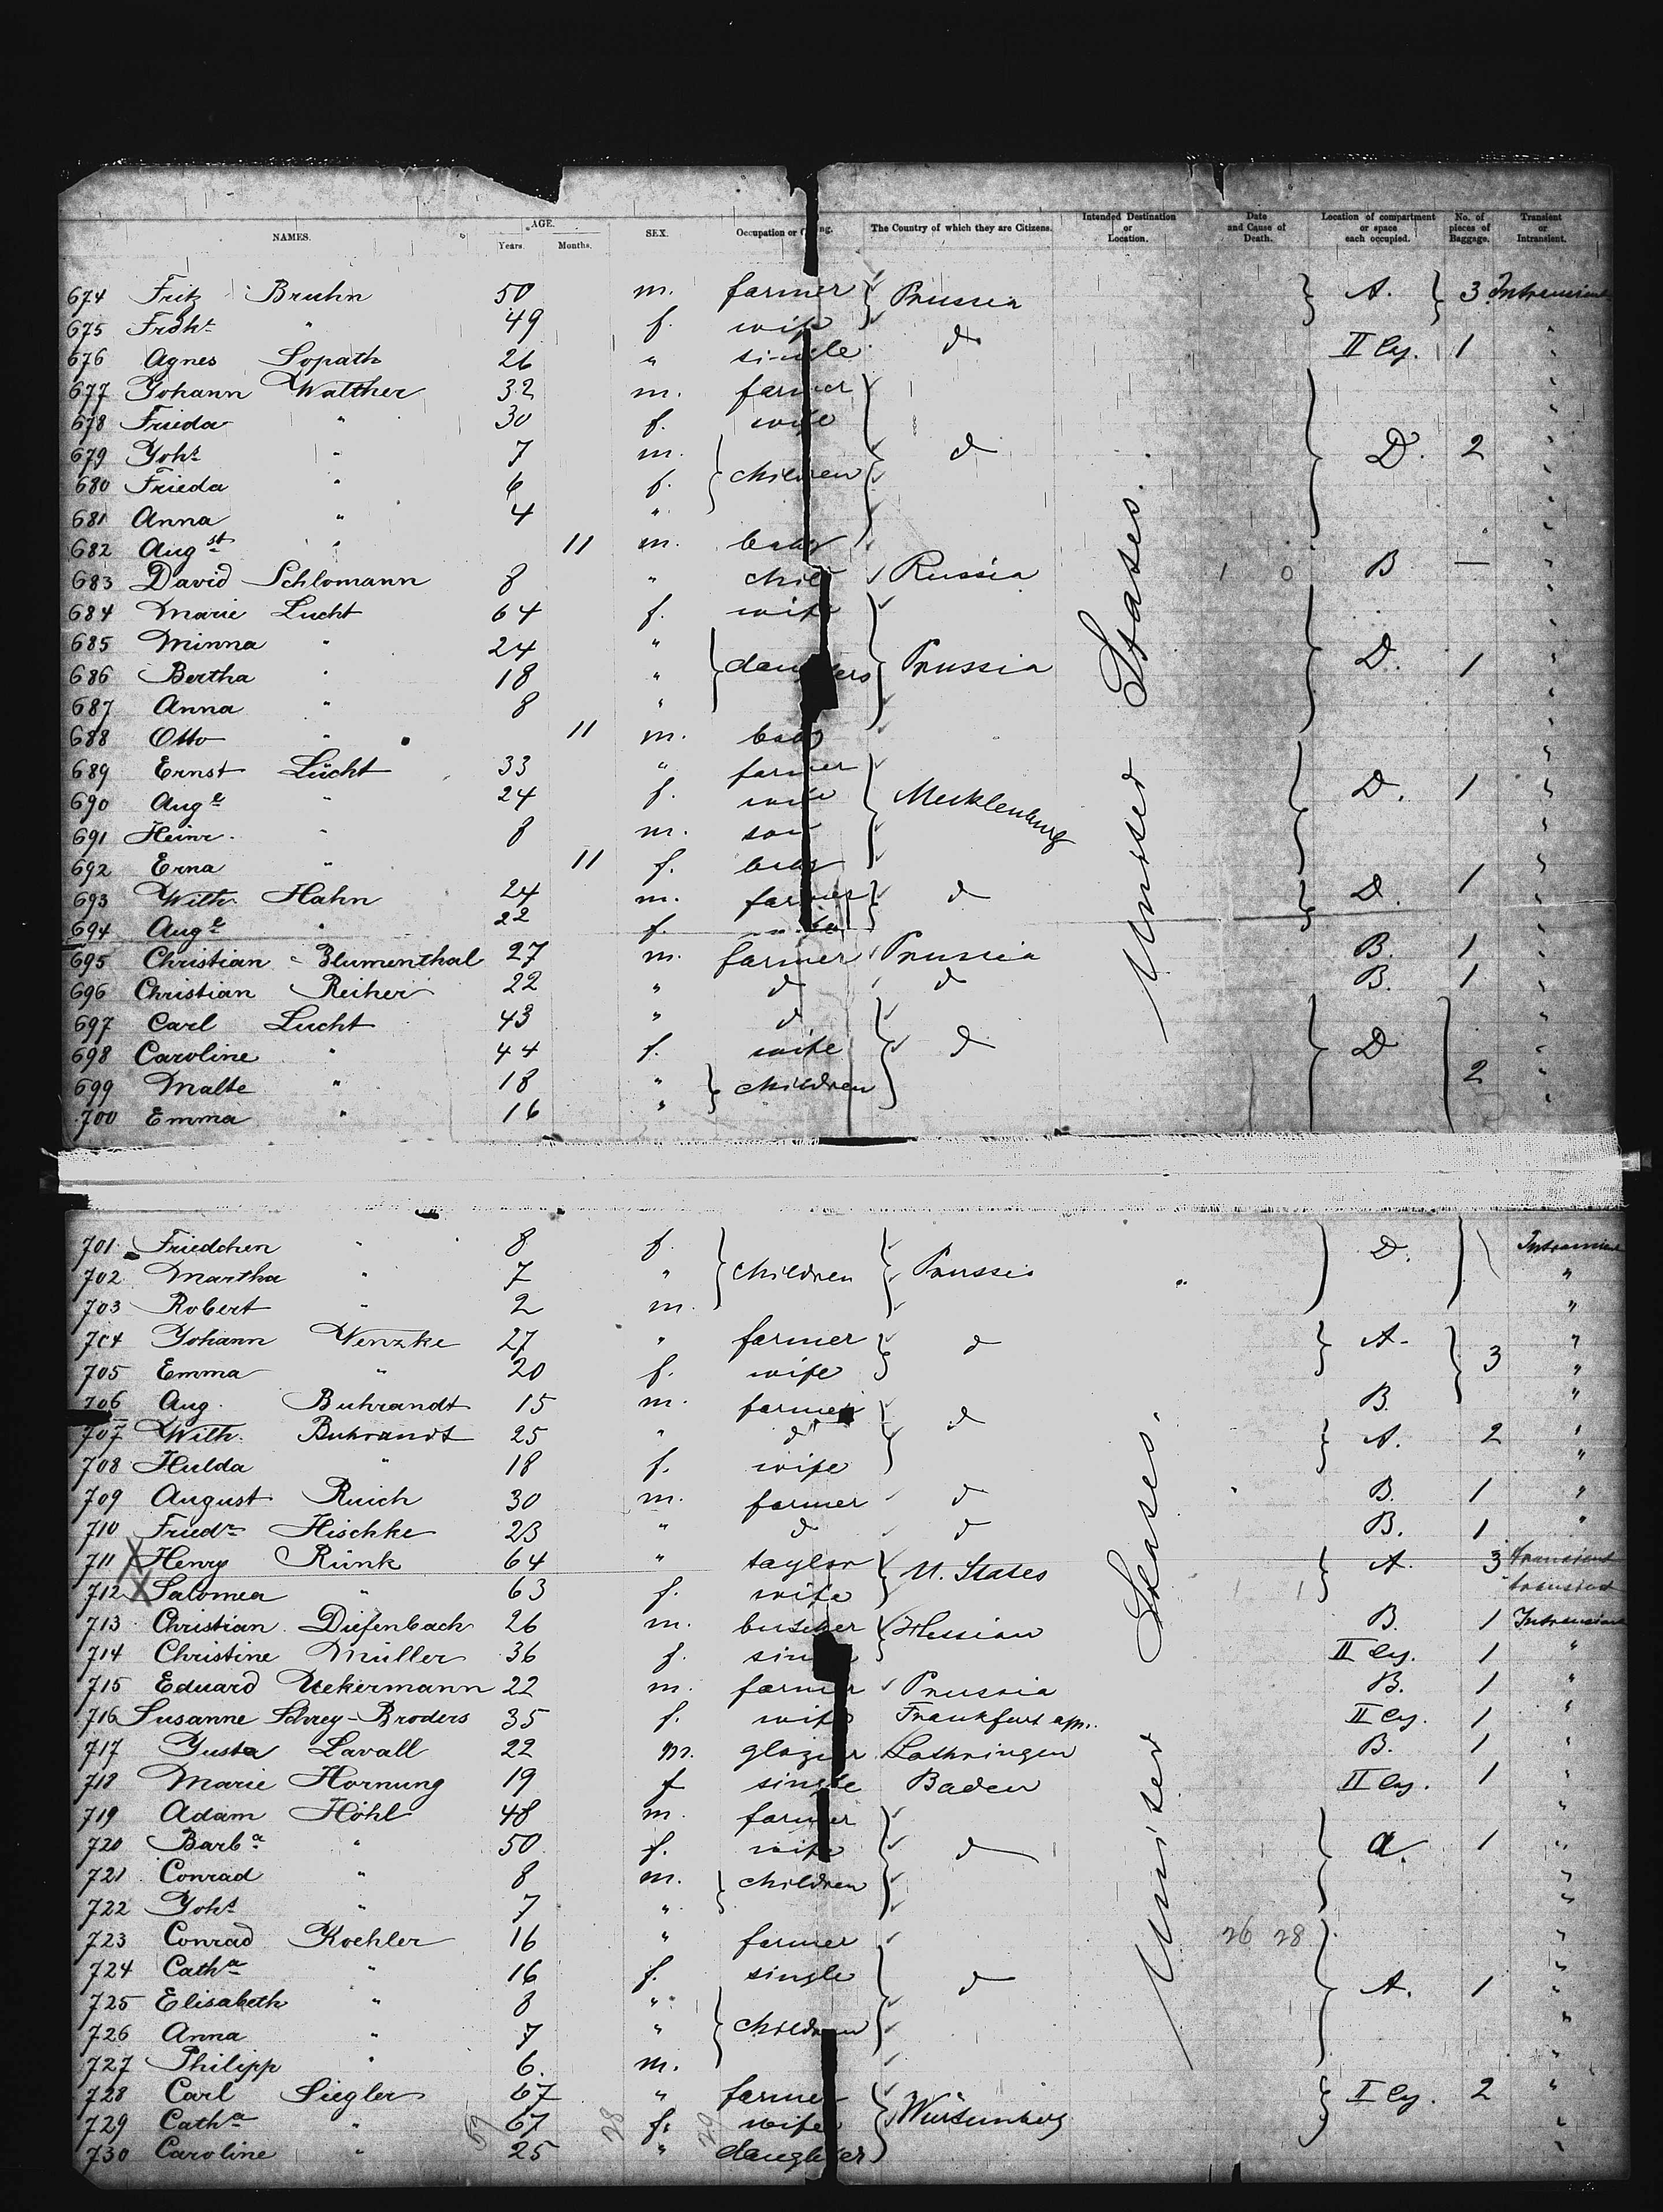 NAMES. AGE. Years. Months. SEX. Occupation or ng. The Country of which they are Citizens. Intended Destination or Location. Date and Cause of Death. Location of compartment or space each occupied. No. of pieces of Baggage. Transient or Intransient.
674 Fritz Bruhn 50 m. farmer Prussia A. 3 Intransient
675 " 49 f. wife
676 Agnes Lopath 26 " single d II Cy. 1 "
677 Johann Walther 32 m. farmer "
678 Frieda " 30 f. wife "
679 Johs " 7 m. children d D. 2 "
680 Frieda " 6 f. "
681 Anna " 4 " "
682 Augst " 11 m. baby "
683 David Schlomann 8 " child Russia B — "
684 Marie Lucht 64 f. wife "
685 Minna " 24 " daughters Prussia D. 1 "
686 Bertha " 18 " "
687 Anna " 8 " "
688 Otto " 11 m. baby "
689 Ernst Lücht 33 " farmer Mecklenburg D. 1 "
690 Auge " 24 f. wife "
691 Heinr. " 8 m. son "
692 Erna " 11 f. baby "
693 Wilh. Hahn 24 m. farmer d D. 1 "
694 Auge " 22 f. wife "
695 Christian Blumenthal 27 m. farmer Prussia B. 1 "
696 Christian Reiher 22 " d d B. 1 "
697 Carl Lucht 43 " d "
698 Caroline " 44 f. wife d D "
699 Malte " 18 " children 2 "
700 Emma " 16 " "
United States.
701 Friedchen " 8 f. D. Intransient
702 Martha " 7 " children Prussia "
703 Robert " 2 m. "
704 Johann Wenzke 27 " farmer d A. "
705 Emma " 20 f. wife 3 "
706 Aug. Buhrandt 15 m. farmer d B. "
707 Wilh. Buhrandt 25 " d A. 2 "
708 Hulda " 18 f. wife "
709 August Ruich 30 m. farmer d B. 1 "
710 Friedr Hischke 23 " d d B. 1 "
711 X Henry Rünk 64 " taylor U. States A. 3 transient
712 X Salomea " 63 f. wife transient
713 Christian Diefenbach 26 m. butcher Hessian B. 1 Intransient
714 Christine Müller 36 f. single II Cy. 1 "
715 Eduard Uekermann 22 m. farmer Prussia B. 1 "
716 Susanne Schrey-Broders 35 f. wife Frankfurt a/m. II Cy. 1 "
717 Justa Lavall 22 m. glazier Lothringen B. 1 "
718 Marie Hornung 19 f single Baden II Cy. 1 "
719 Adam Höhl 48 m. farmer "
720 Barba " 50 f. wife d a. 1 "
721 Conrad " 8 m. children "
722 Johs " 7 " "
723 Conrad Koehler 16 " farmer 26 28 "
724 Catha " 16 f. single d A. 1 "
725 Elisabeth " 8 " children "
726 Anna " 7 " "
727 Philipp " 6. m. "
728 Carl Siegler 67 " farmer Würtemberg II Cy. 2 "
729 Catha " 67 f. wife "
730 Caroline " 25 " daughter "
United States.